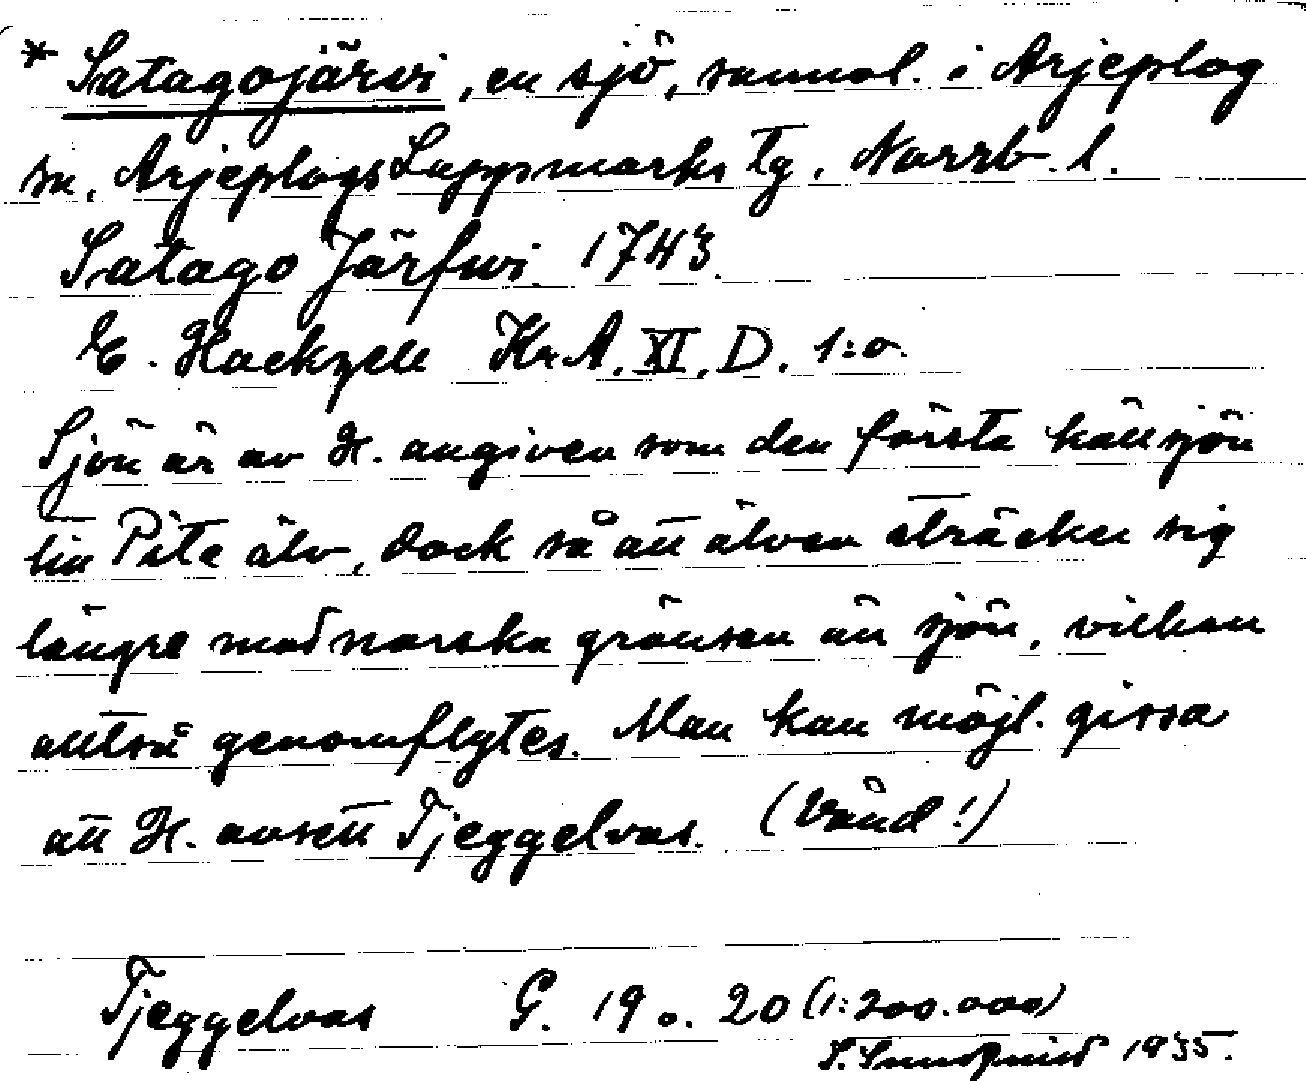 * Satagojärvi, en sjö, sannol. i Arjeplog
sn, Arjeplogs Lappmarks tg, Norrb. l.
Satago Järfwi 1743
E. Hackzell Kr.A. XI. D. 1:o.
Sjön är av H. angiven som den första källsjön
till Pite älv, dock så att älven sträcker sig
längre mot norska gränsen än sjön, vilken
alltså genomflytes. Man kan möjl. gissa
att H. avsett Tjeggelvas. (Vänd!)
Tjeggelvas G. 19 o. 20 (1:200.000)
S. 1935.